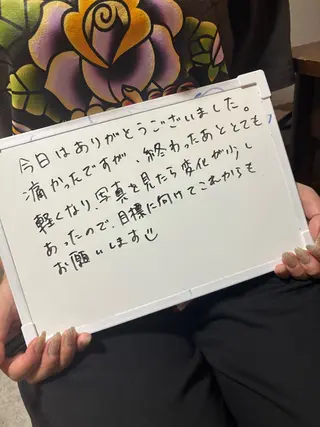 今日はありがとうございました。
痛かったですが、終わったあととても
軽くなり、写真を見たら変化が少し
あったので、目標に向けてこれからも
お願いします